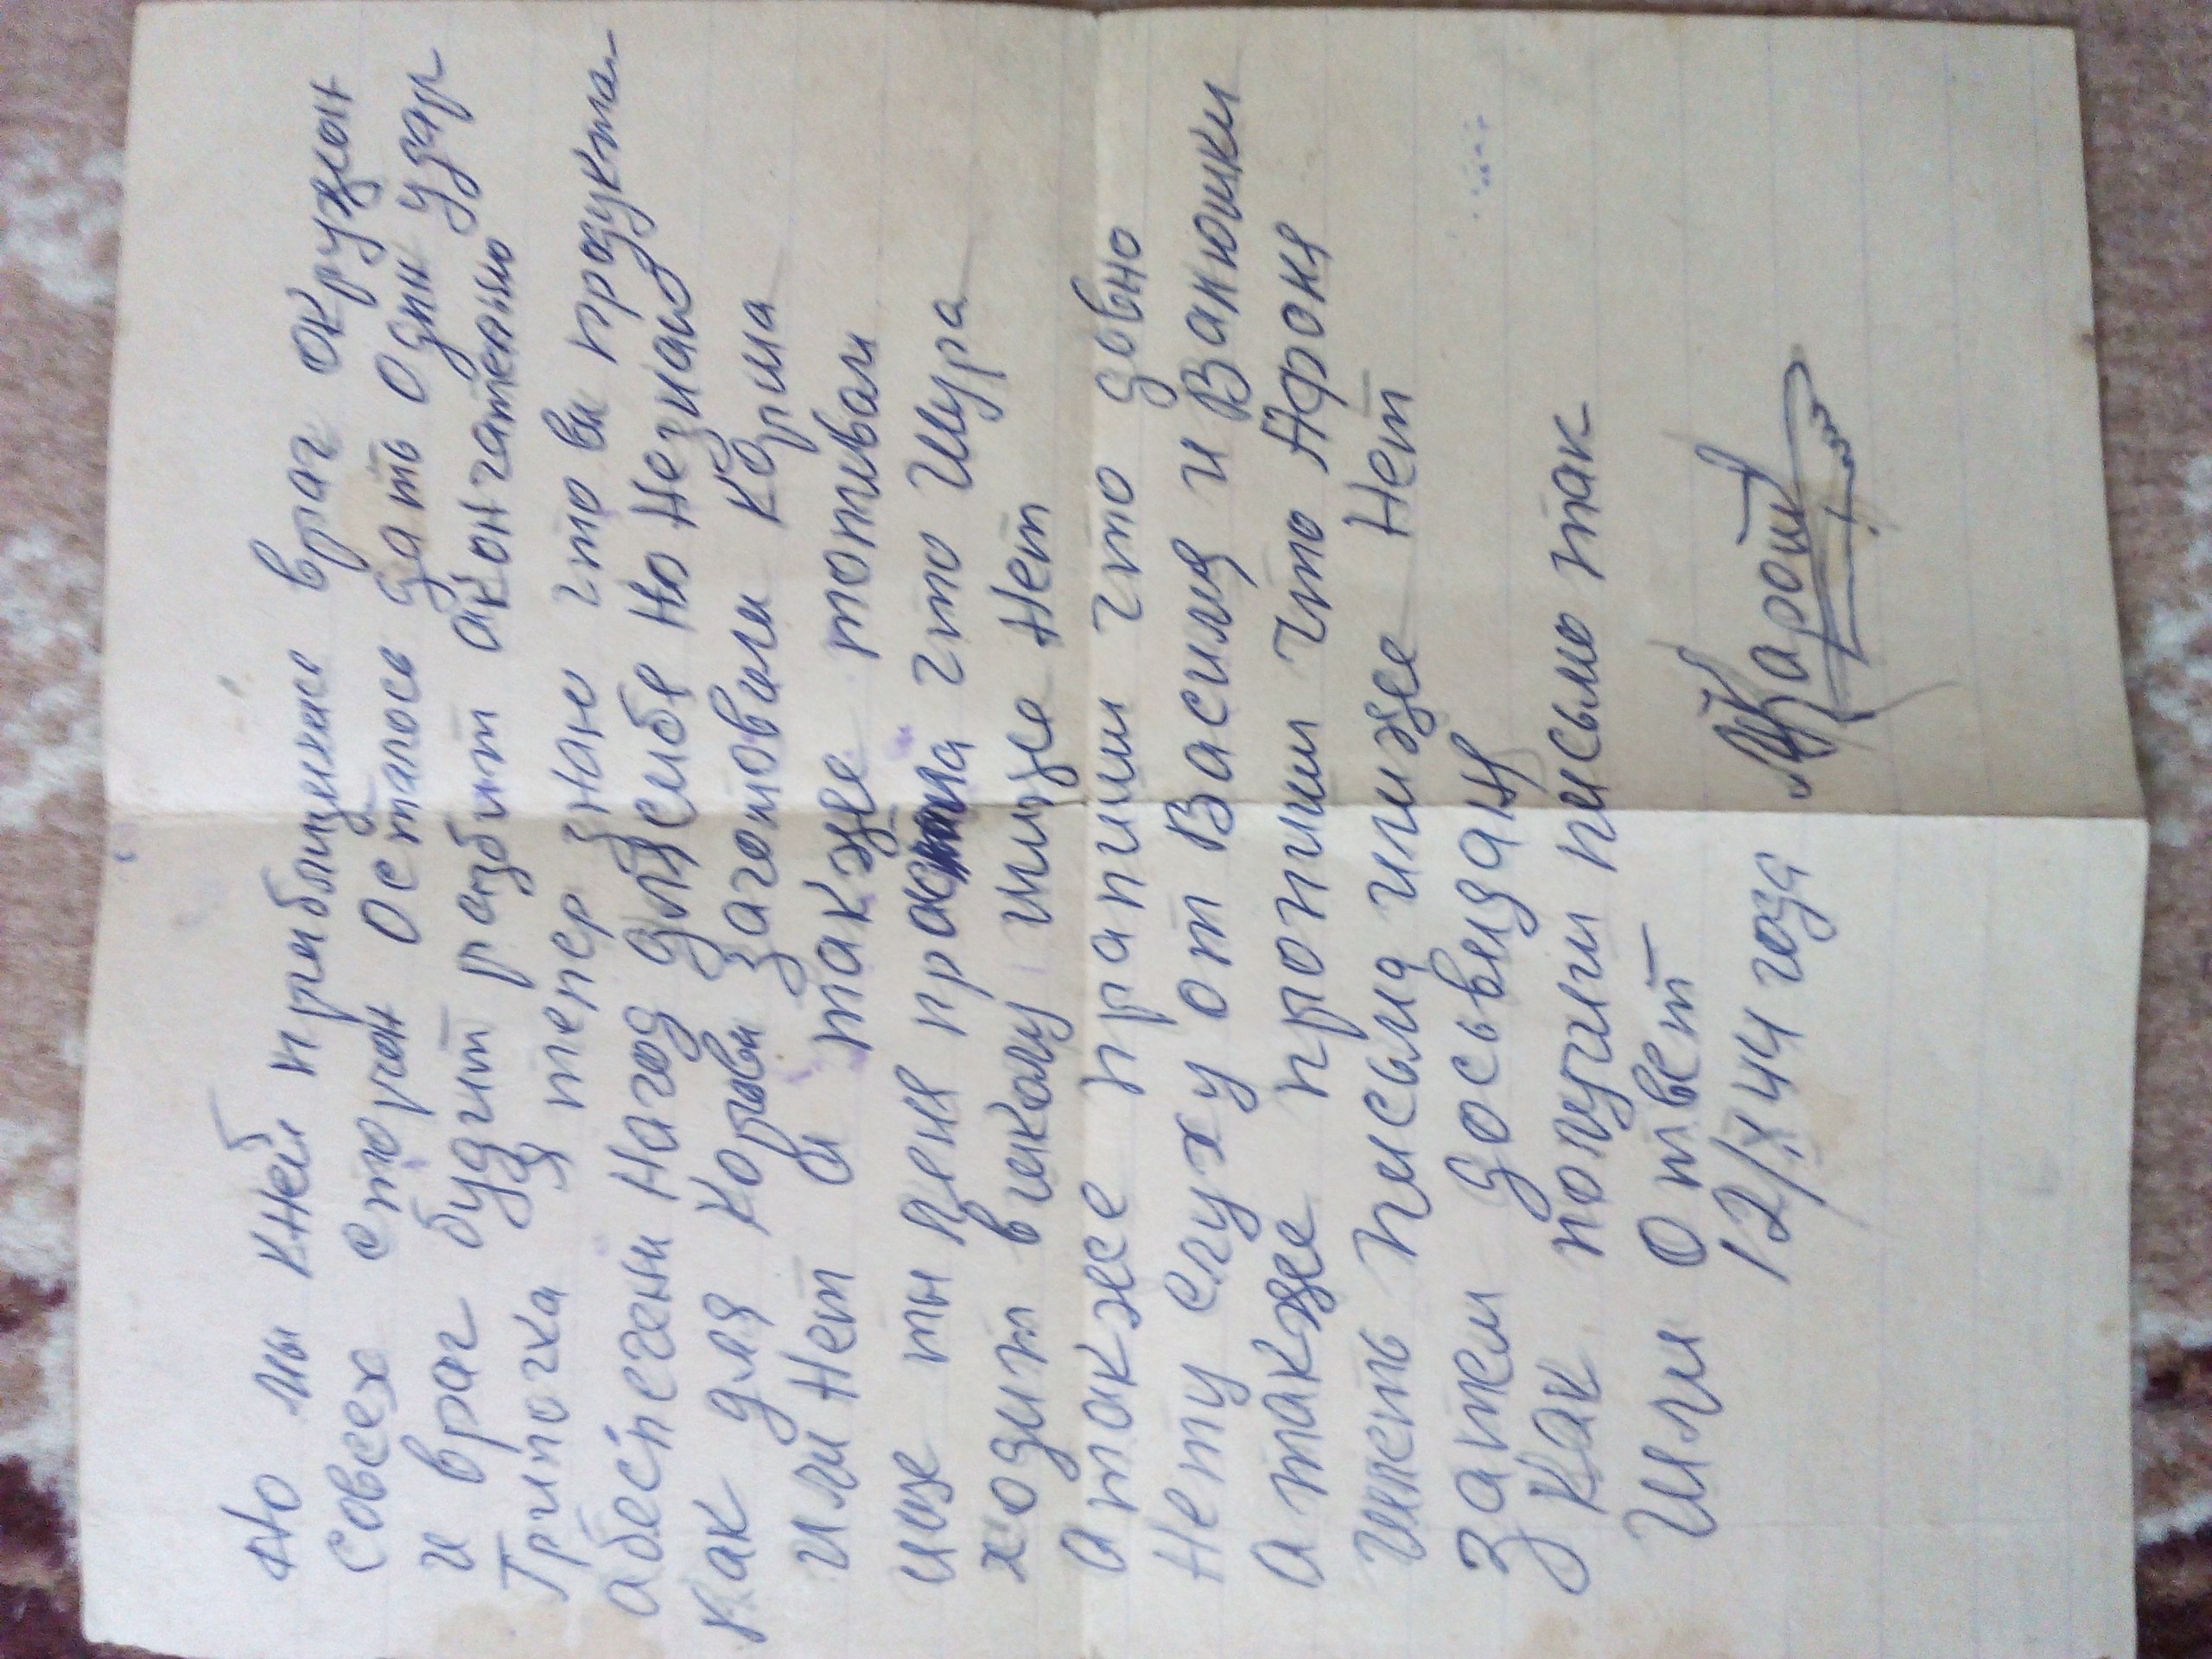 Но мы кней приближенас враг окружон
совсех сторон осталось дать один удар
и враг будит разбит аконгательно
Гриточка я тепер знаю что ви продукта
абеспечени нагод для себя но незнаю
как для коровы заготовили корма
или нет а также топивом
ище ты меня проста что шура
ходит в школу или нет
а также прапиши что довно
нету слуху от Василия и Ванюшки
а также пропиши что Афоня
шлеть письма илиже нет
затем досьвидан
как получиш письмо так
шли ответ
12/X 44 года